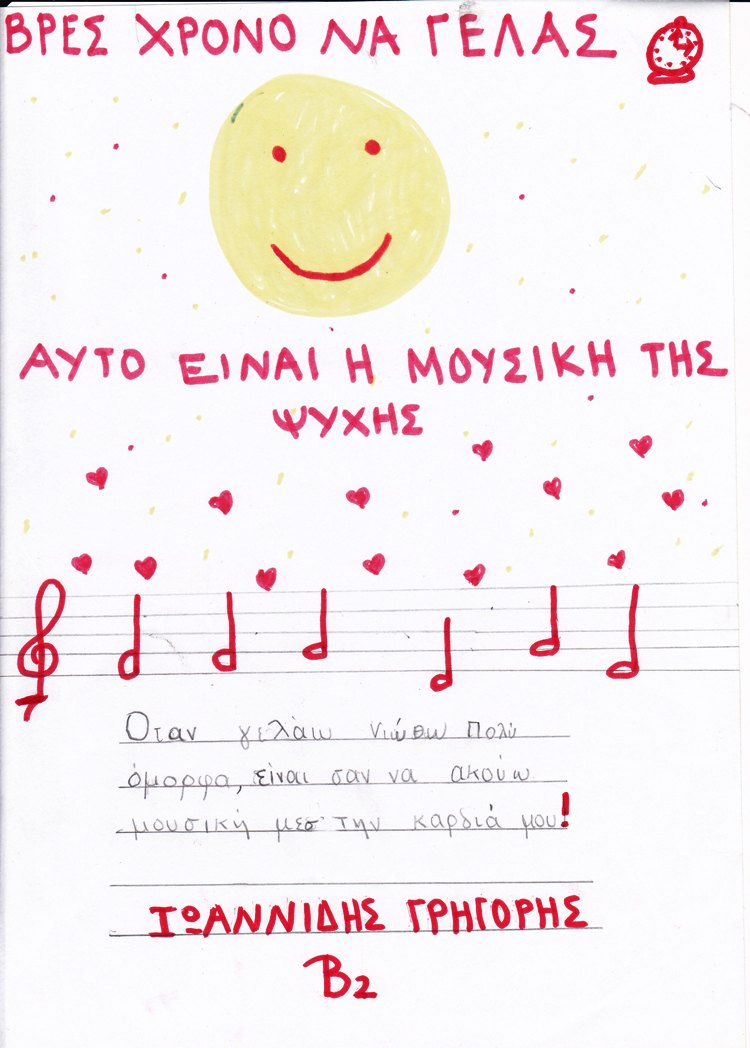 ΒΡΕΣ ΧΡΟΝΟ ΝΑ ΓΕΛΑΣ
ΑΥΤΟ ΕΙΝΑΙ Η ΜΟΥΣΙΚΗ ΤΗΣ
ΨΥΧΗΣ
Οταν γελάω νιώθω πολύ
όμορφα, είναι σαν να ακούω
μουσική μεσ την καρδιά μου!
ΙΩΑΝΝΙΔΗΣ ΓΡΗΓΟΡΗΣ
Β2